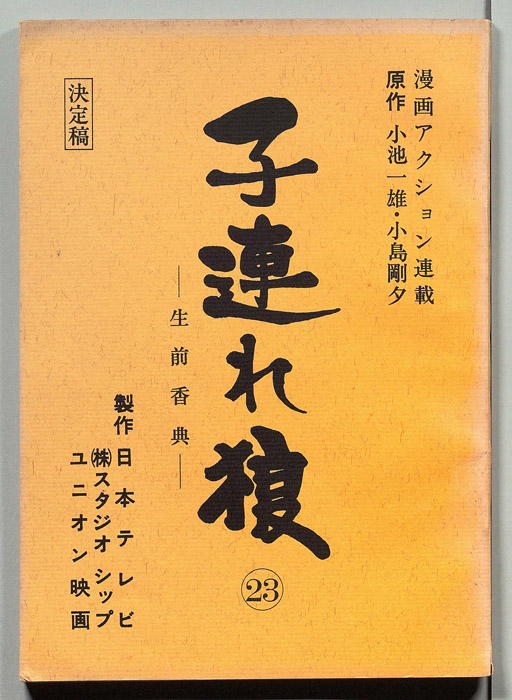 漫画アクション連載
原作 小池一雄・小島剛夕
子連れ狼
㉓
―生前香典―
決定稿
製作 日本テレビ
㈱スタジオシップ
ユニオン映画